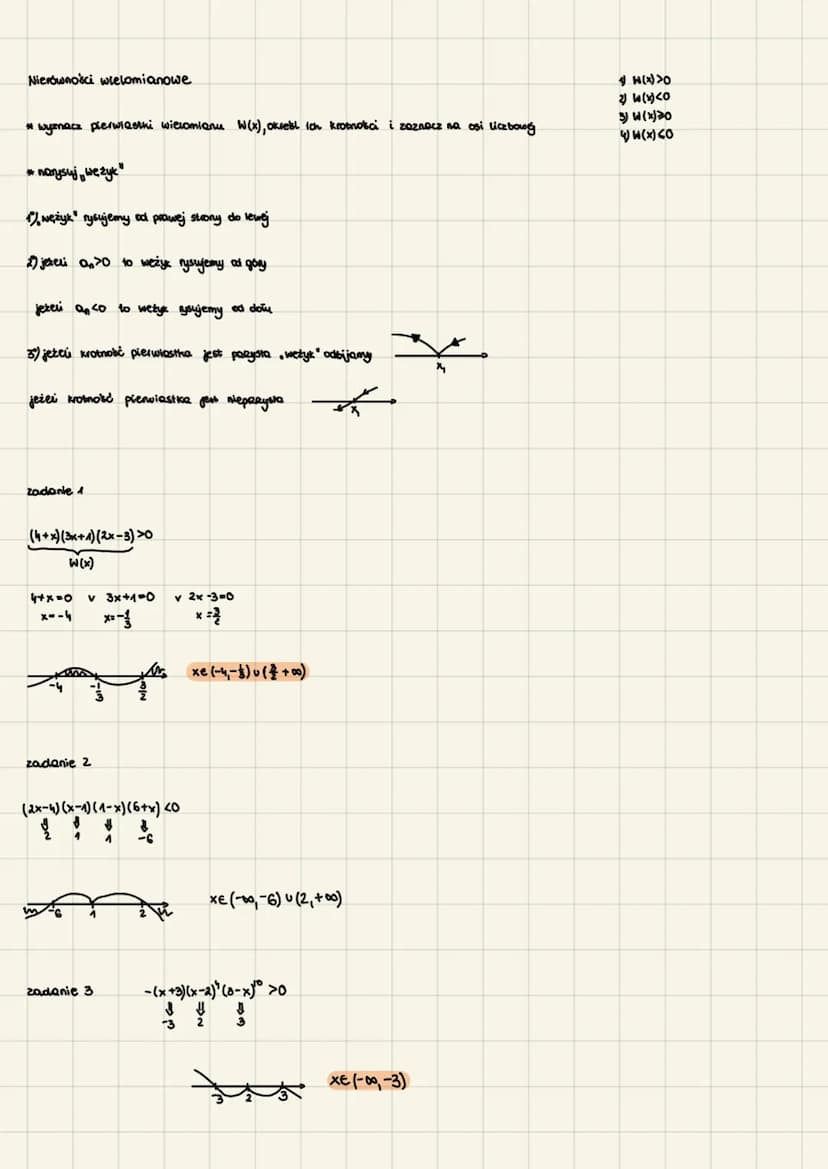 Nierówności wielomianowe
1) W(x)>0
2) W(x)<0
3) W(x)≥0
4) W(x)≤0
* wyznacz pierwiastki wielomianu W(x), określ ich krotności i zaznacz na osi liczbowej
* narysuj „wężyk"
1) „wężyk" rysujemy od prawej strony do lewej
2) jeżeli aₙ>0 to wężyk rysujemy od góry
jeżeli aₙ<0 to wężyk rysujemy od dołu
3) jeżeli krotność pierwiastka jest parzysta „wężyk" odbijamy
x₁
jeżeli krotność pierwiastka jest nieparzysta
x₁
zadanie 1
(4+x)(3x+1)(2x-3)>0
W(x)
4+x=0 v 3x+1=0 v 2x-3=0
x=-4 x=-1/3 x=3/2
-4 -1/3 3/2
x∈(-4,-1/3)∪(3/2+∞)
zadanie 2
(2x-4)(x-1)(1-x)(6+x)<0
2 1 1 -6
-6 1 2
x∈(-∞,-6)∪(2,+∞)
zadanie 3
-(x+3)(x-2)⁴(3-x)¹⁰>0
-3 2 3
-3 2 3
x∈(-∞,-3)